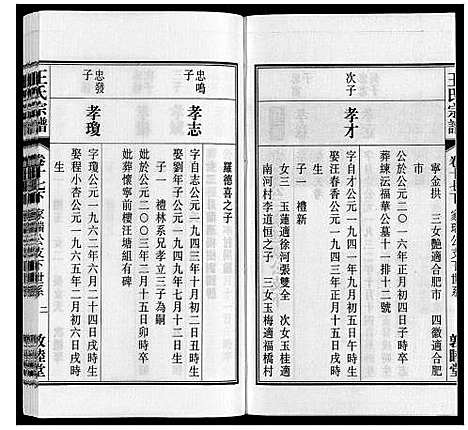 王氏宗譜
寧金拱 三女艷適合肥市 四徽適合肥
市
公於公元二〇一六年正月初四日子時卒
葬埬沄福華公墓十一排十二號
次子
孝才
字自才公元一九四九年五月
娶汪春香公元一九五一年正月初九日午時生
子一 禮新
女三 玉蓮適徐河張雙全 次女玉桂適
南河村李道恒之子 三女玉梅適福橋村
羅德喜之子
忠鳴
子
孝志
字自志公元一九四三年十月初二日丑時生
娶劉年子公元一九四九年七月十二日生
子一 禮林系兄孝立三子為嗣
妣於公元二〇〇三年二月十五日卯時卒
妣葬懷寧前樓汪塘組有碑
忠發
子
孝瓊
字瓊公元一九六二年六月二十四日戌時生
娶程小杏公元一九六五年二月初六日戌時
生
王氏宗譜
卷十七下
家瑞公支下世系
二
敦睦堂